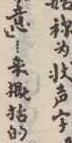 始称为状声字
意”来概括的